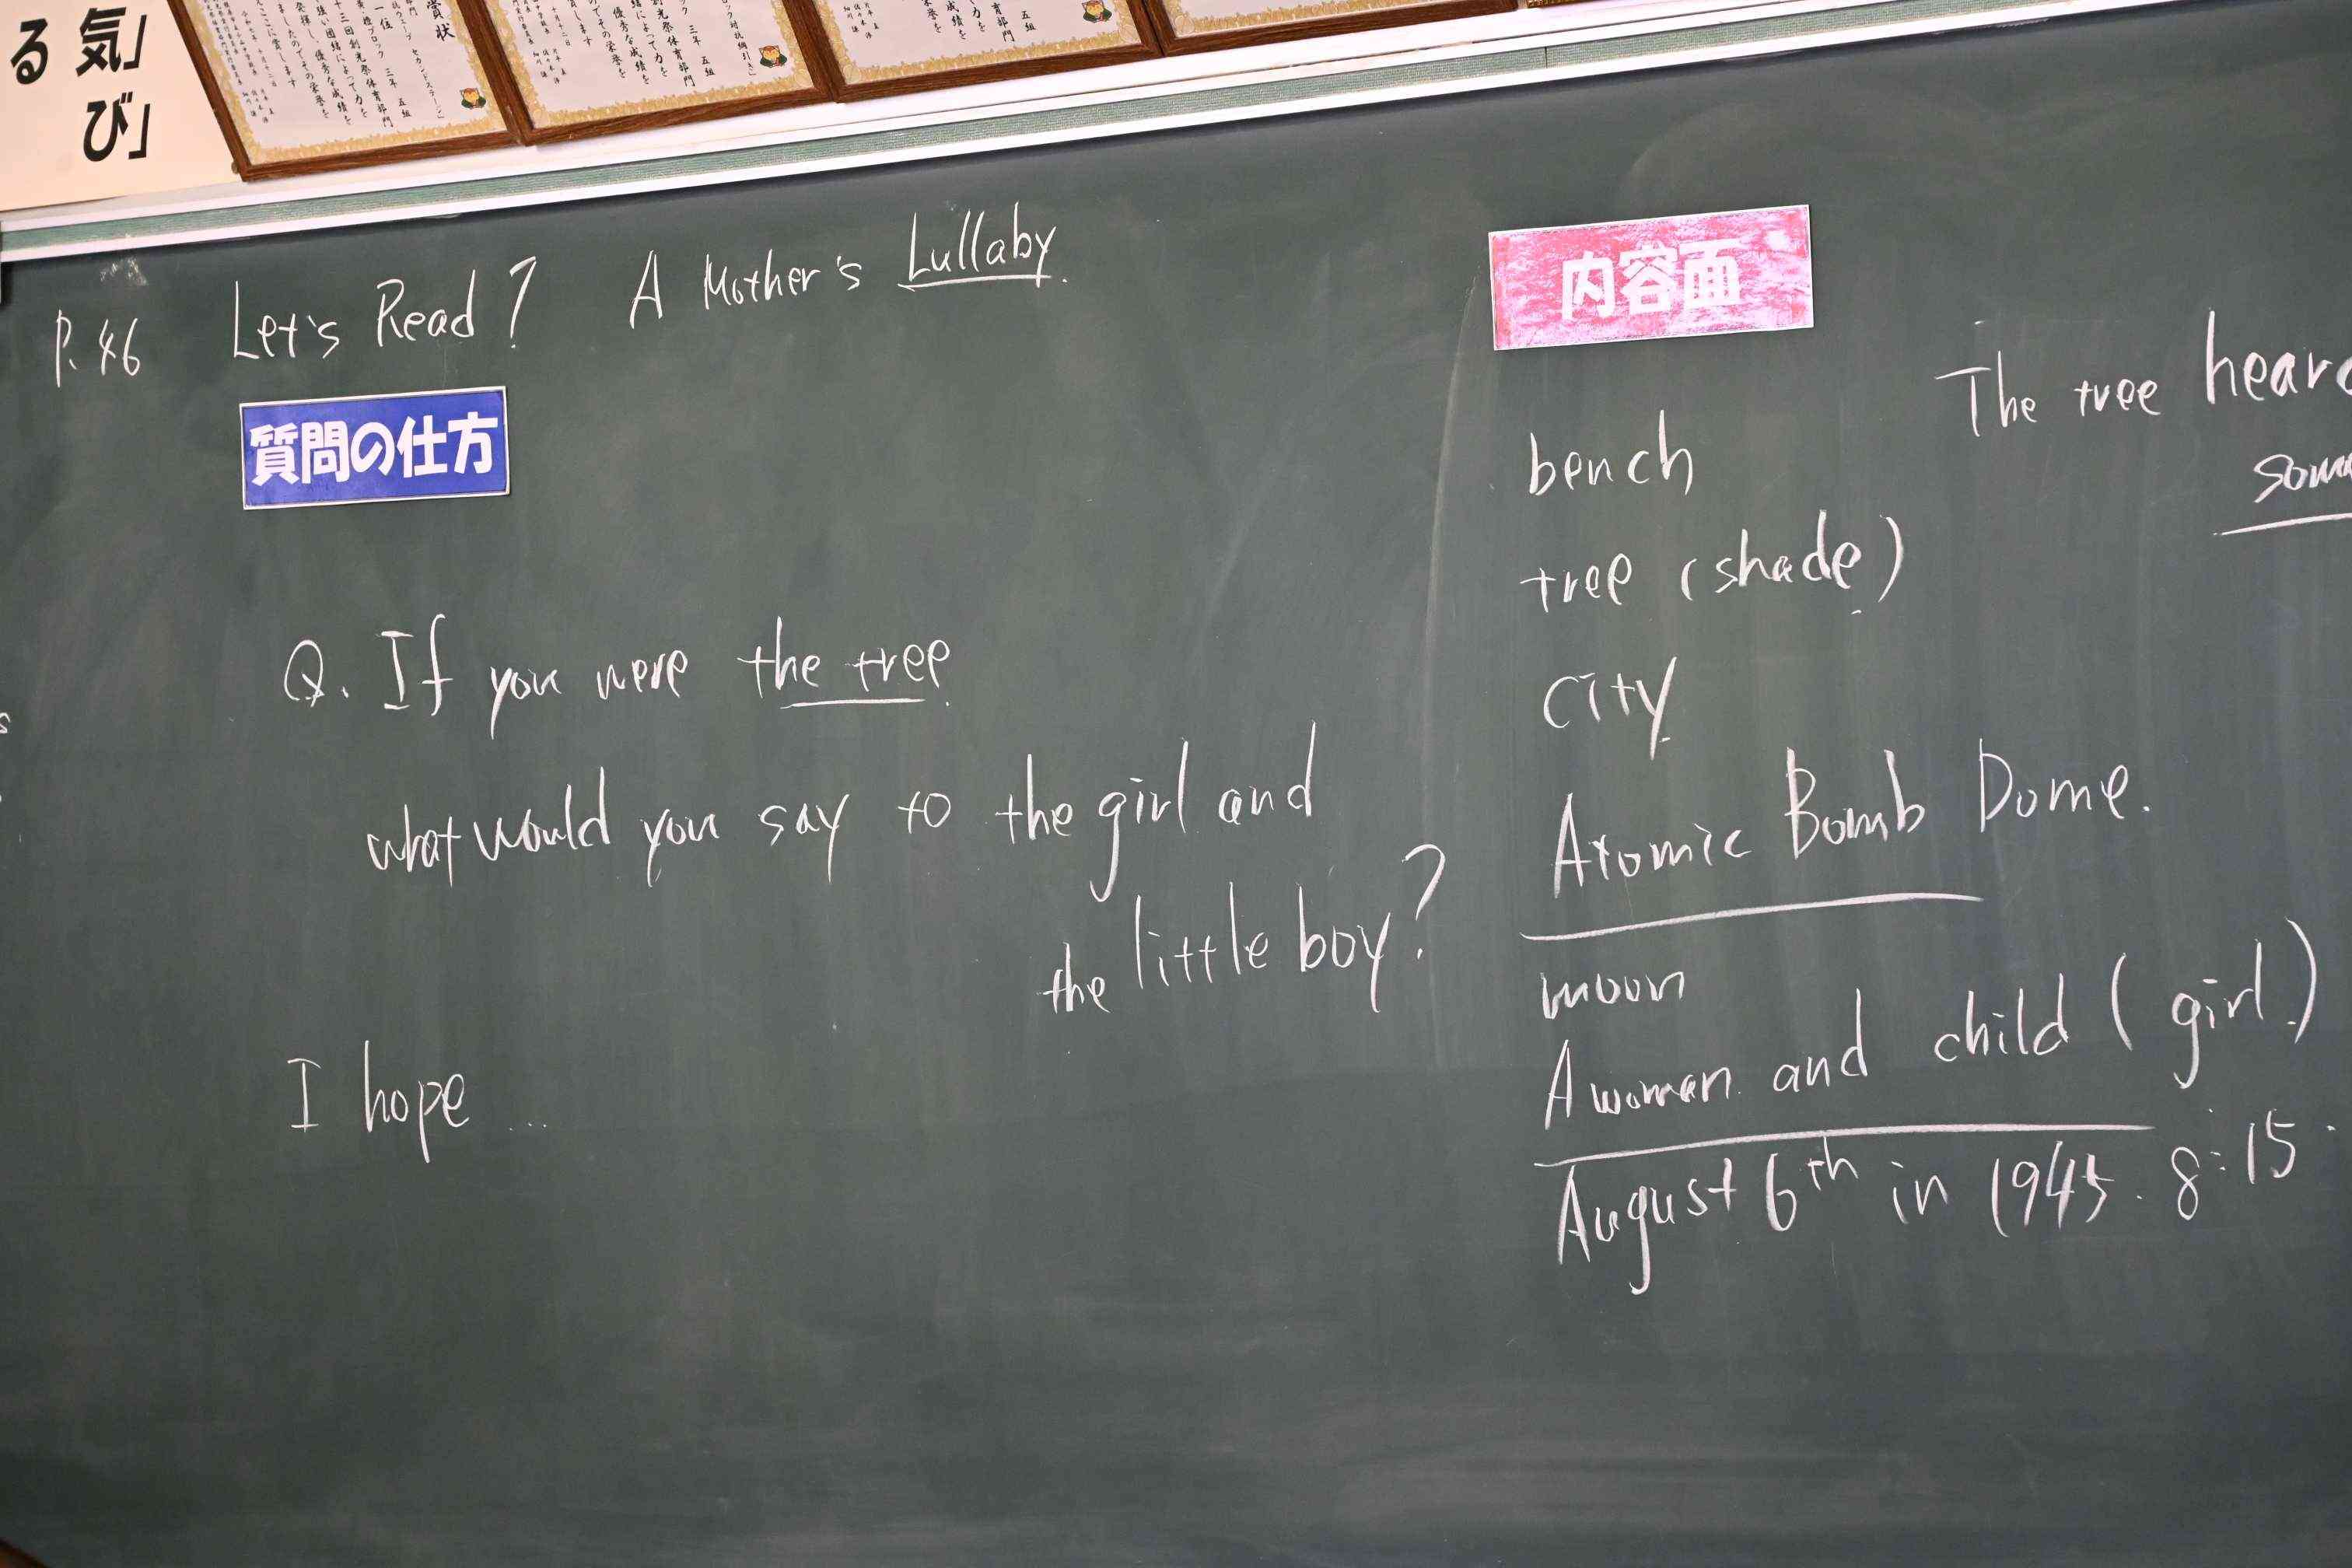 気」
び」
る
賞状
P.46 Let's Read? A Mother's Lullaby.
質問の仕方
Q. If you were the tree
what would you say to the girl and
the little boy?
I hope ...
内容面
The tree hear
som
bench
tree (shade)
city
Atomic Bomb Dome.
moon
A woman and child (girl)
August 6th in 1945. 8:15.